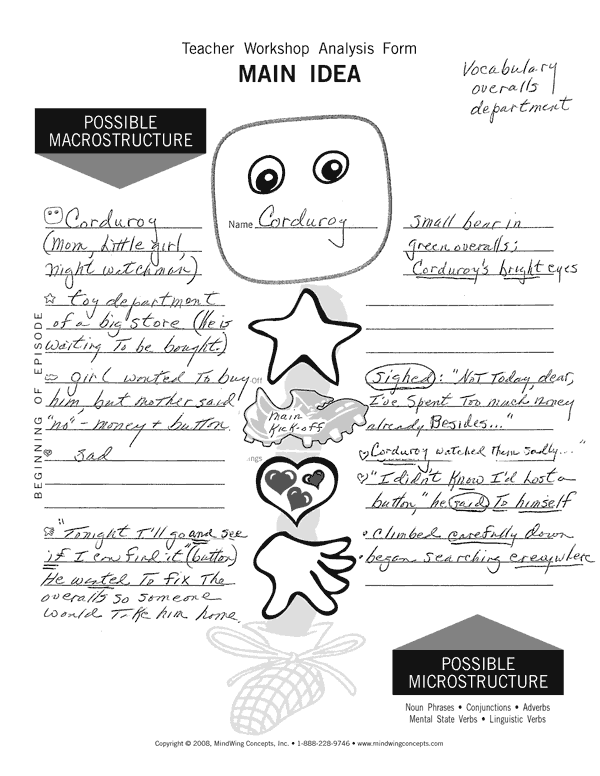 Teacher Workshop Analysis Form
MAIN IDEA
Vocabulary
overalls
department
POSSIBLE
MACROSTRUCTURE
Name Corduroy
Corduroy
(Mom, Little girl,
night watchman)
toy department
of a big store (He is
waiting To be bought.)
girl wanted To buy
him, but mother said
"no" - money + button.
sad
"Tonight I'll go and see
if I can find it" (button)
He wanted To fix The
overalls so someone
would Take him home.
BEGINNING OF EPISODE
off
main
Kick-off
ngs
small bear in
green overalls;
Corduroy's bright eyes
sighed: "Not Today, dear,
I've Spent Too much money
already. Besides..."
Corduroy watched Them sadly..."
"I didn't Know I'd Lost a
button," he said To himself
• climbed carefully down
• began searching everywhere
POSSIBLE
MICROSTRUCTURE
Noun Phrases • Conjunctions • Adverbs
Mental State Verbs • Linguistic Verbs
Copyright © 2008, MindWing Concepts, Inc. • 1-888-228-9746 • www.mindwingconcepts.com